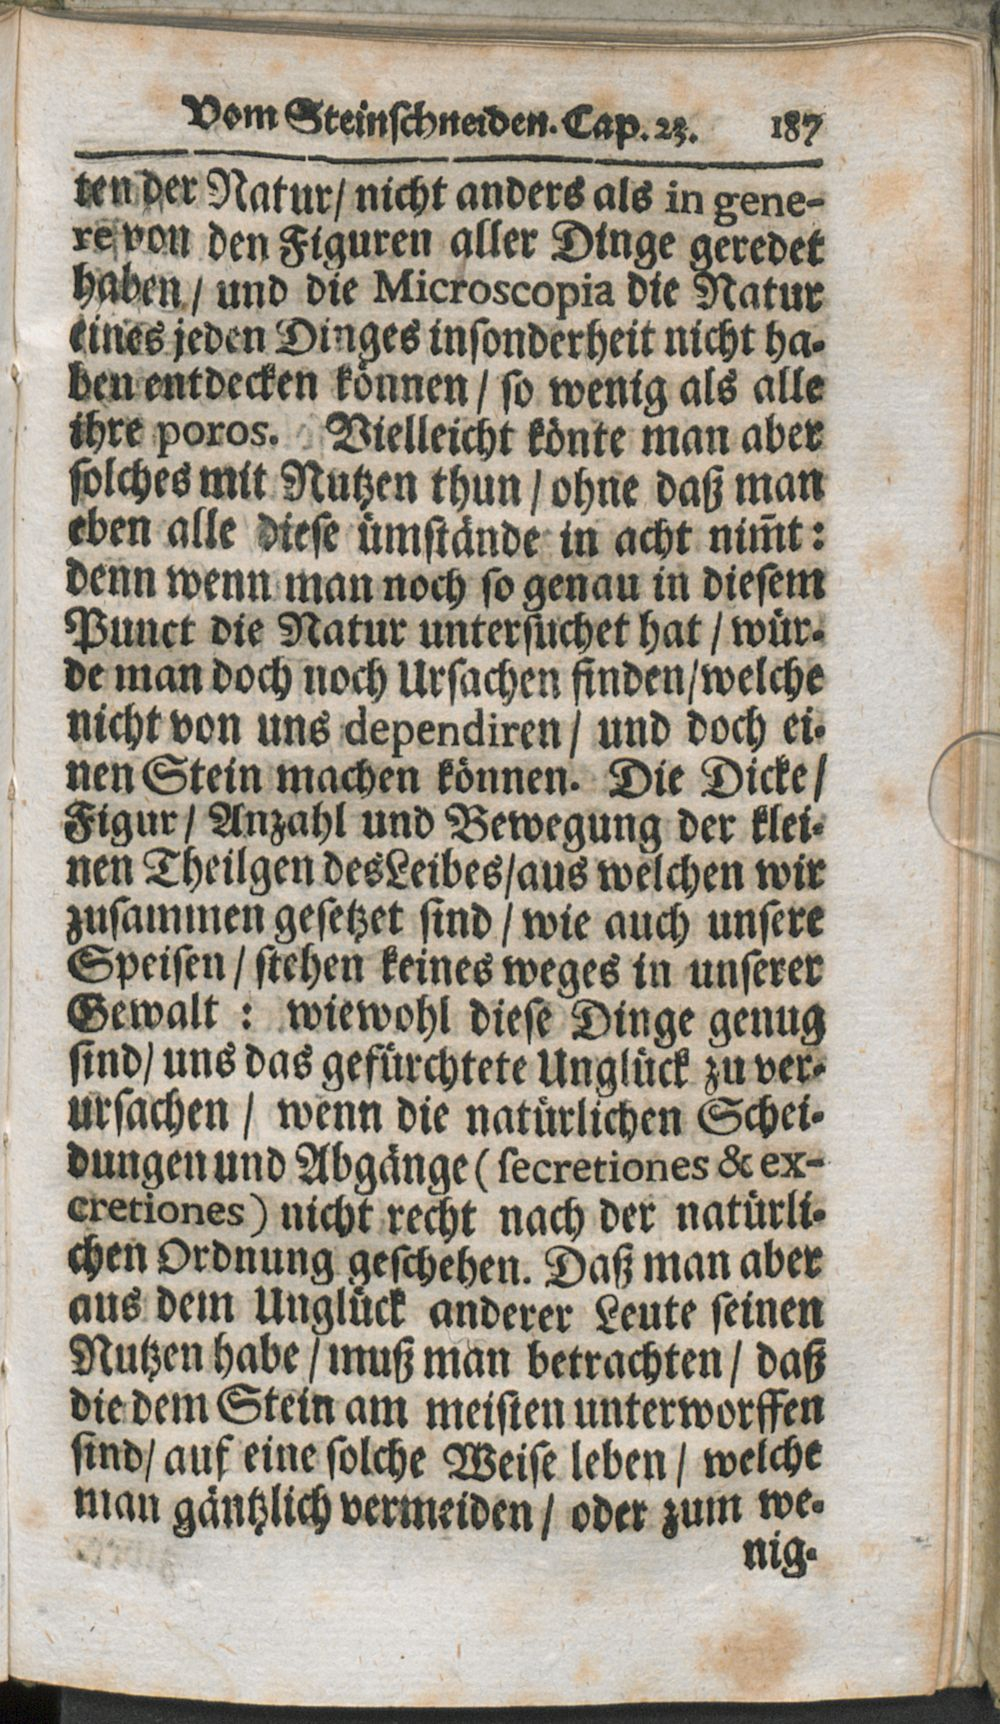 Vom Steinschneiden. Cap. 23. 187
ten der Natur/ nicht anders als in gene-
re von den Figuren aller Dinge geredet
haben / und die Microscopia die Natur
eines jeden Dinges insonderheit nicht ha-
ben entdecken können / so wenig als alle
ihre poros. Vielleicht könte man aber
solches mit Nutzen thun / ohne daß man
eben alle diese ümstände in acht nim̄t:
denn wenn man noch so genau in diesem
Punct die Natur untersuchet hat / wür-
de man doch noch Ursachen finden/welche
nicht von uns dependiren / und doch ei-
nen Stein machen können. Die Dicke /
Figur / Anzahl und Bewegung der klei-
nen Theilgen des Leibes/aus welchen wir
zusammen gesetzet sind / wie auch unsere
Speisen / stehen keines weges in unserer
Gewalt : wiewohl diese Dinge genug
sind/ uns das gefürchtete Unglück zu ver-
ursachen / wenn die natürlichen Schei-
dungen und Abgänge ( secretiones & ex-
cretiones ) nicht recht nach der natürli-
chen Ordnung geschehen. Daß man aber
aus dem Unglück anderer Leute seinen
Nutzen habe / muß man betrachten / daß
die dem Stein am meisten unterworffen
sind/ auf eine solche Weise leben / welche
man gäntzlich vermeiden / oder zum we-
nig-